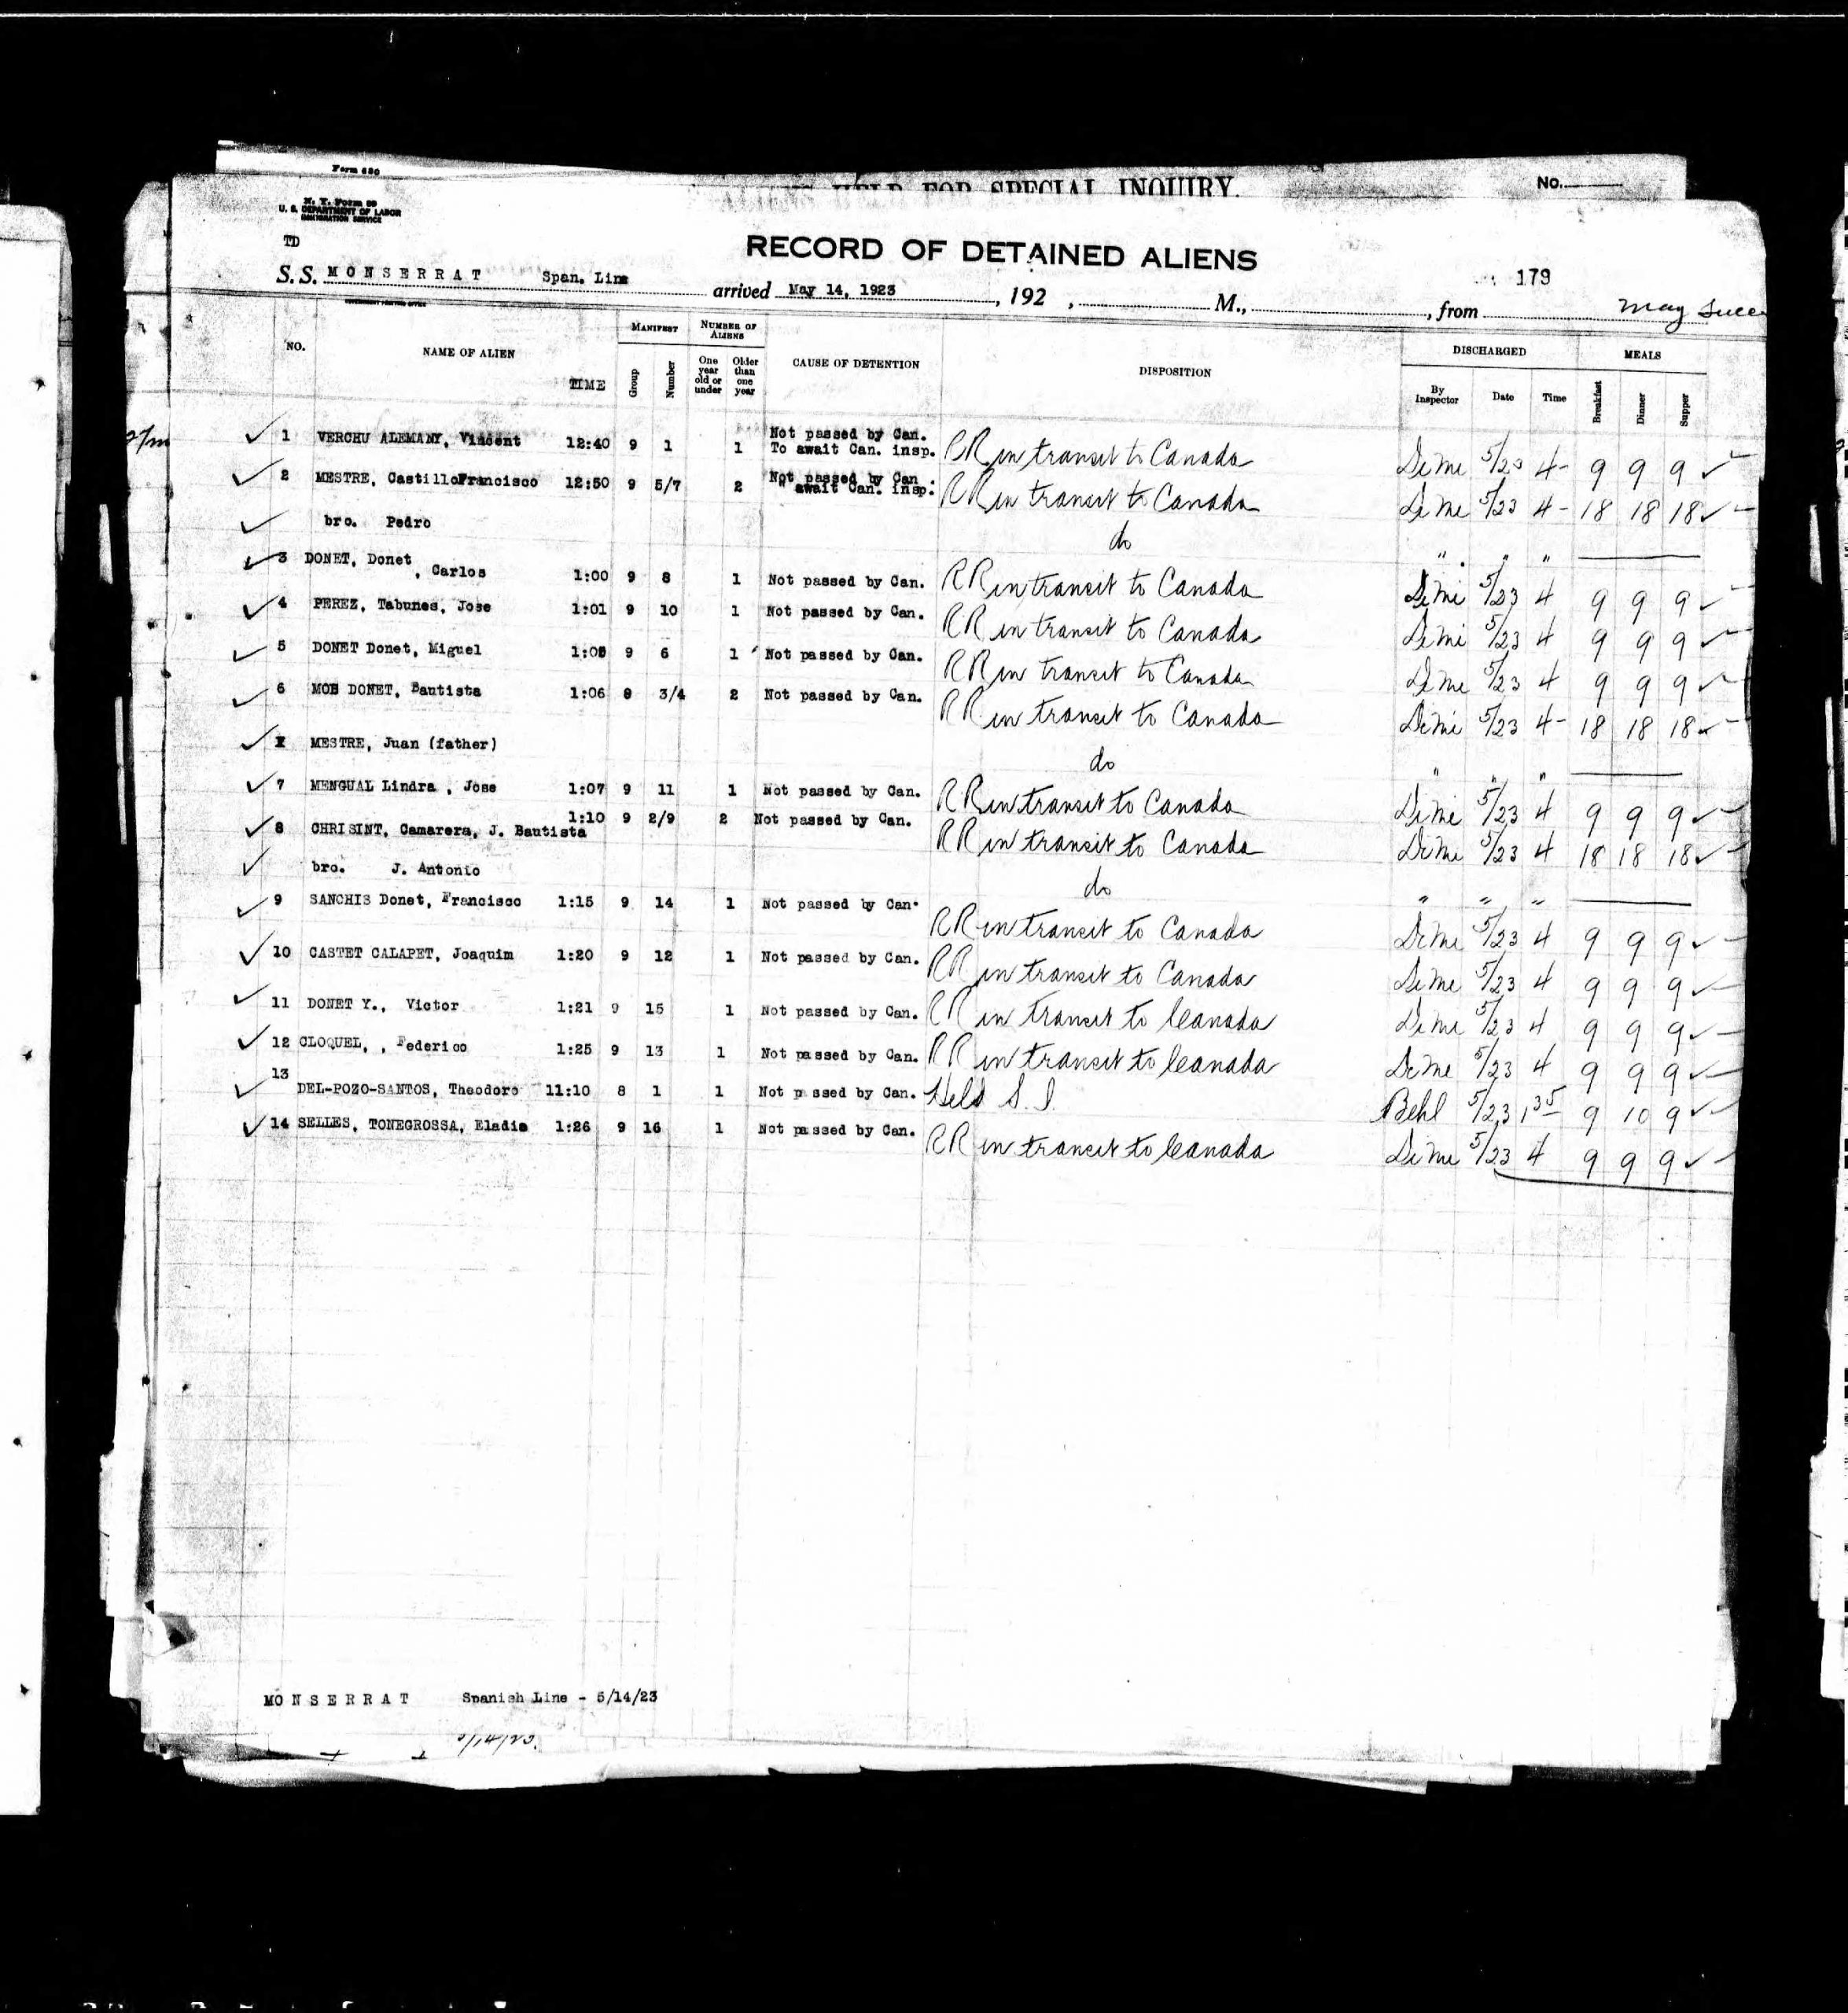 Form 630
HELD FOR SPECIAL INQUIRY.
No.
N. Y. Form 99
U. S. DEPARTMENT OF LABOR
IMMIGRATION SERVICE
TD
RECORD OF DETAINED ALIENS
179
S. S. MONSERRAT Span. Line arrived May 14, 1923, 192 , M., , from May
GOVERNMENT PRINTING OFFICE
NO. NAME OF ALIEN TIME MANIFEST Group Number NUMBER OF ALIENS One year old or under Older than one year CAUSE OF DETENTION DISPOSITION DISCHARGED By Inspector Date Time MEALS Breakfast Dinner Supper
✓ 1 VERCHU ALEMANY, Vincent 12:40 9 1 1 Not passed by Can. To await Can. insp. RR in transit to Canada 5/23 4- 9 9 9 ✓
✓ 2 MESTRE, CastilloFrancisco 12:50 9 5/7 2 Not passed by Can. " await Can. insp. RR in transit to Canada 5/23 4- 18 18 18 ✓
✓ bro. Pedro do " " "
✓ 3 DONET, Donet, Carlos 1:00 9 8 1 Not passed by Can. RR in transit to Canada 5/23 4 9 9 9 ✓
✓ 4 PEREZ, Tabunes, Jose 1:01 9 10 1 Not passed by Can. RR in transit to Canada 5/23 4 9 9 9 ✓
✓ 5 DONET Donet, Miguel 9 6 1 Not passed by Can. RR in transit to Canada 5/23 4 9 9 9 ✓
✓ 6 DONET, Bautista 1:06 3/4 2 Not passed by Can. RR in transit to Canada 5/23 4- 18 18 18 ✓
✓ MESTRE, Juan (father) do " " "
✓ 7 MENGUAL Lindra , Jose 1:07 9 11 1 Not passed by Can. RR in transit to Canada 5/23 4 9 9 9 ✓
✓ 8 CHRISINT, Camarera, J. Bautista 1:10 9 2/9 2 Not passed by Can. RR in transit to Canada 5/23 4 18 18 18 ✓
✓ bro. J. Antonio do " " "
✓ 9 SANCHIS Donet, Francisco 1:15 9 14 1 Not passed by Can. RR in transit to Canada 5/23 4 9 9 9 ✓
✓ 10 CASTET CALAPET, Joaquim 1:20 9 12 1 Not passed by Can. RR in transit to Canada 5/23 4 9 9 9 ✓
✓ 11 DONET Y., Victor 1:21 9 15 1 Not passed by Can. RR in transit to Canada 5/23 4 9 9 9 ✓
✓ 12 CLOQUEL, , Federico 1:25 9 13 1 Not passed by Can. RR in transit to Canada 5/23 4 9 9 9 ✓
✓ 13 DEL-POZO-SANTOS, Theodoro 11:10 8 1 1 Not passed by Can. Held S. I. Behl 5/23 1 35 9 10 9 ✓
✓ 14 SELLES, TONEGROSSA, Eladio 1:26 9 16 1 Not passed by Can. RR in transit to Canada 5/23 4 9 9 9 ✓
MONSERRAT Spanish Line - 5/14/23